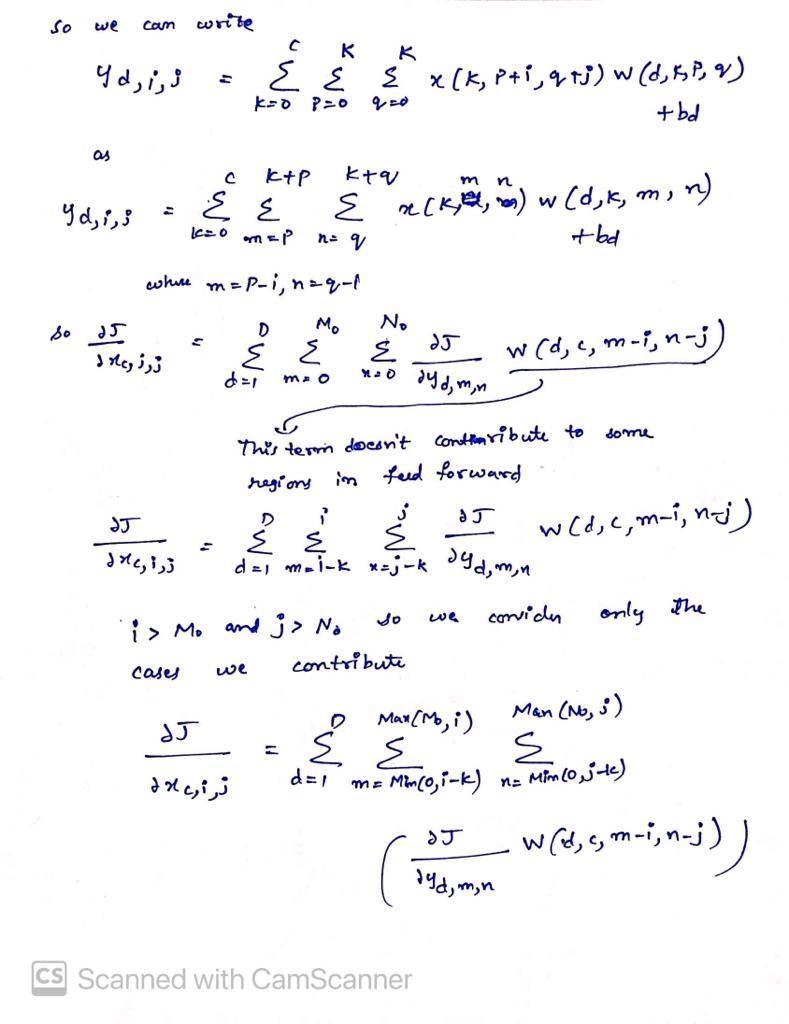 so we can write
y_{d,i,j} = Σ_{k=0}^{C} Σ_{p=0}^{K} Σ_{q=0}^{K} x(k, p+i, q+j) w(d,k,p,q)
+bd
as
y_{d,i,j} = Σ_{k=0}^{C} Σ_{m=p}^{k+p} Σ_{n=q}^{k+q} x(k, m, n) w(d,k,m,n)
+bd
where m = p-i, n = q-1
so ∂J/∂x_{c,i,j} = Σ_{d=1}^{D} Σ_{m=0}^{M_o} Σ_{n=0}^{N_o} ∂J/∂y_{d,m,n} w(d, c, m-i, n-j)
This term doesn't contribute to some
regions in feed forward
∂J/∂x_{c,i,j} = Σ_{d=1}^{D} Σ_{m=i-k}^{i} Σ_{n=j-k}^{j} ∂J/∂y_{d,m,n} w(d,c,m-i,n-j)
i > M_o and j > N_o so we considen only the
cases we contribute
∂J/∂x_{c,i,j} = Σ_{d=1}^{D} Σ_{m=Min(0,i-k)}^{Max(M_o,i)} Σ_{n=Min(0,j-k)}^{Man(N_o,j)}
(∂J/∂y_{d,m,n} w(d,c,m-i,n-j))
CS Scanned with CamScanner